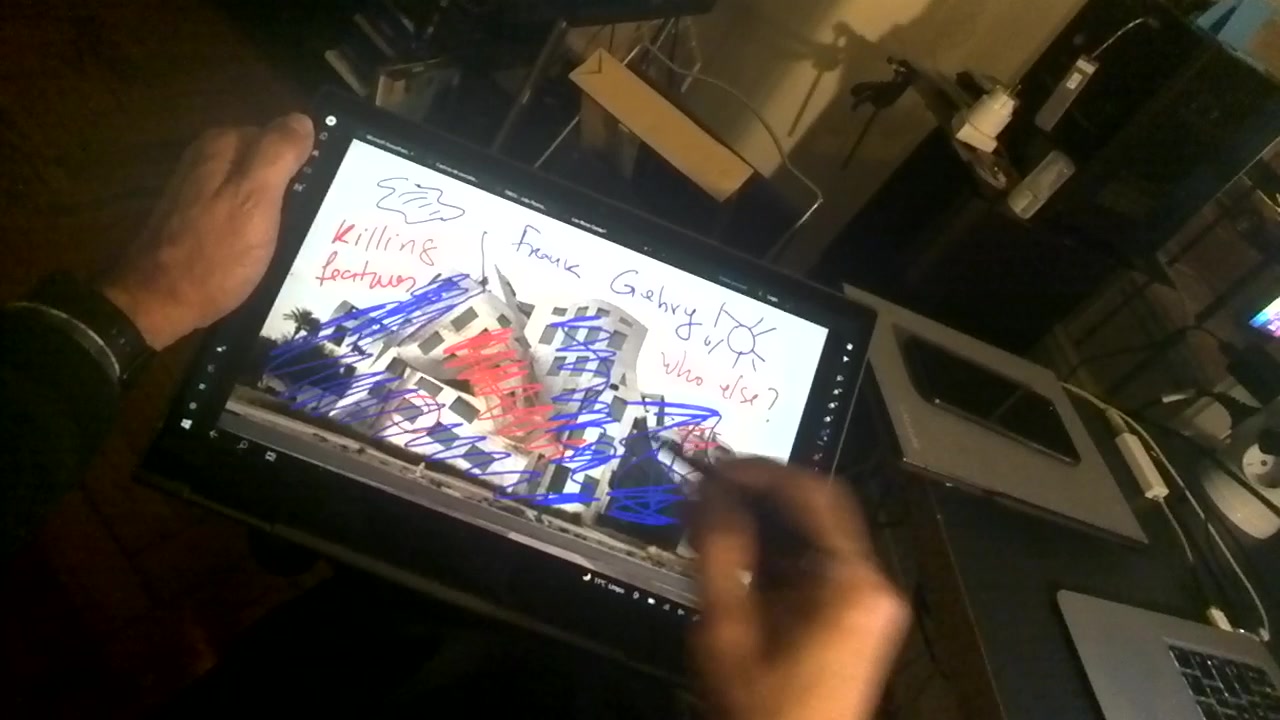 Killing
features
Frank Gehry!
who else?
11°C Limpo